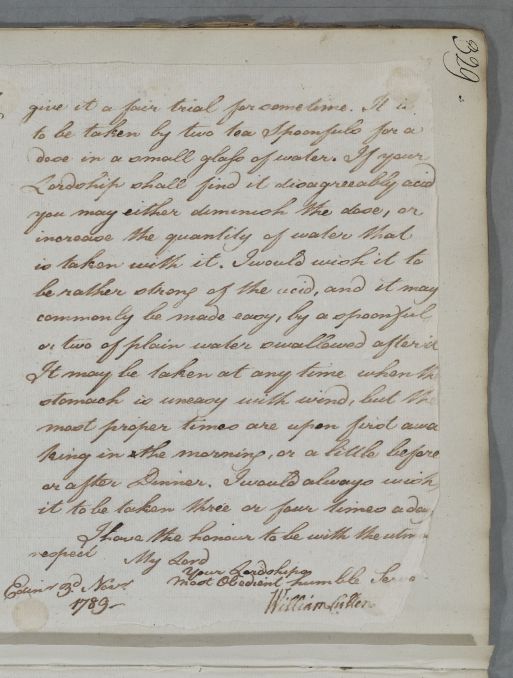 329
give it a fair trial for some time. It is
to be taken by two tea Spoonfuls for a
dose in a small glass of water. If your
Lordship shall find it disagreeably acid
you may either diminish the dose, or
increase the quantity of water that
is taken with it. I would wish it to
be rather strong of the acid, and it may
commonly be made easy, by a spoonful
or two of plain water swallowed after it
It may be taken at any time when the
stomach is uneasy with wind, but the
most proper times are upon first awa
king in the morning, or a little before
or after Dinner. I would always wish
it to be taken three or four times a day
I have the honour to be with the utm
respect My Lord
Your Lordships
most Obedient humble Serv
Edinr 3d Novr
1789
William Cullen